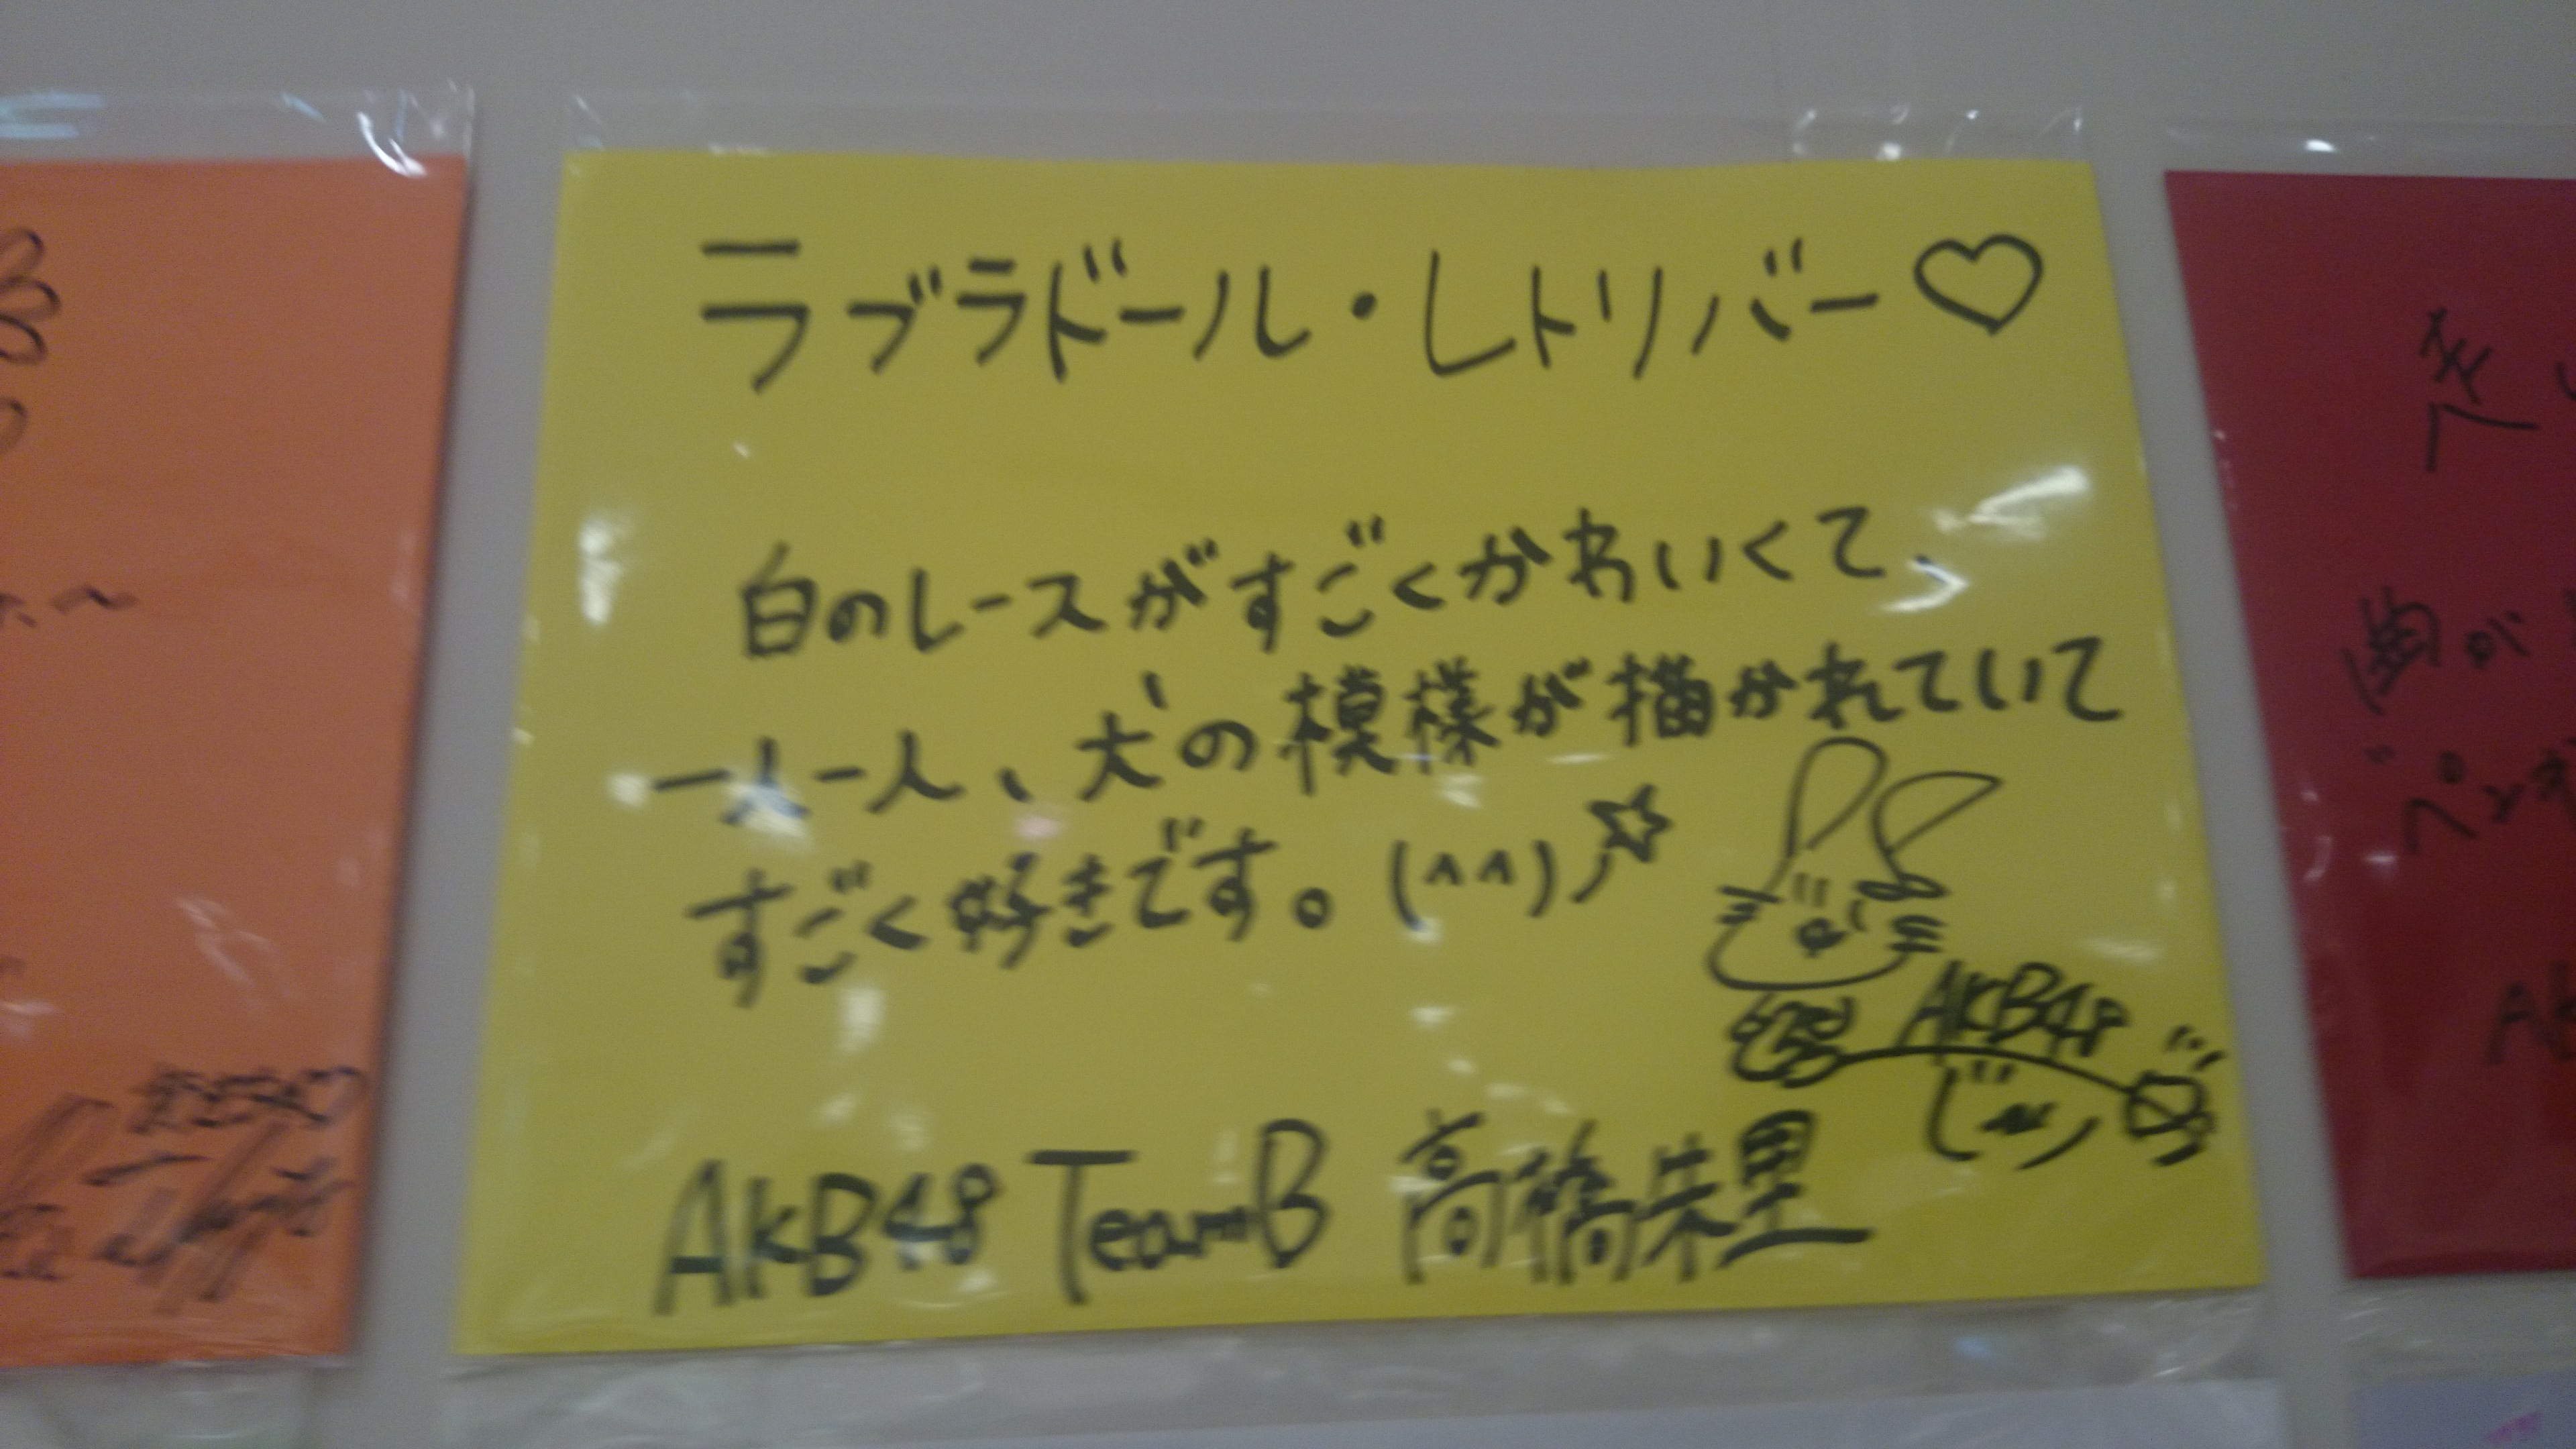 ラブラドール・レトリバー♡
白のレースがすごくかわいくて、
一人一人、犬の模様が描かれていて
すごく好きです。(^^)ノ☆
AKB48
AKB48 TeamB 高橋朱里
曲が